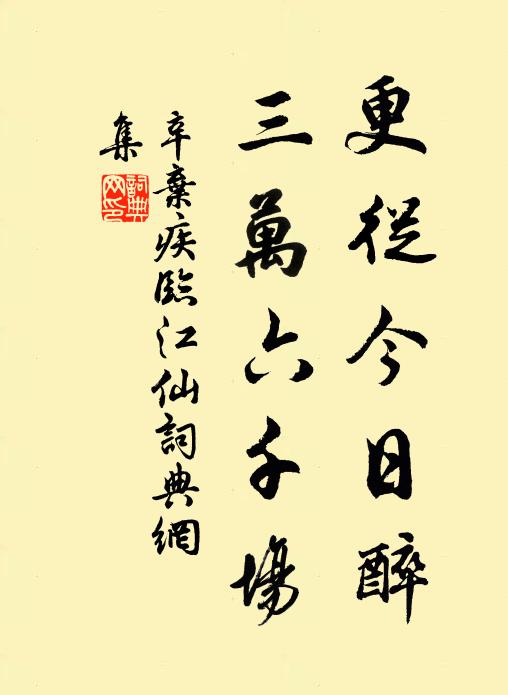 更從今日醉
三萬六千場
辛棄疾臨江仙詞典網
集
詞典網印